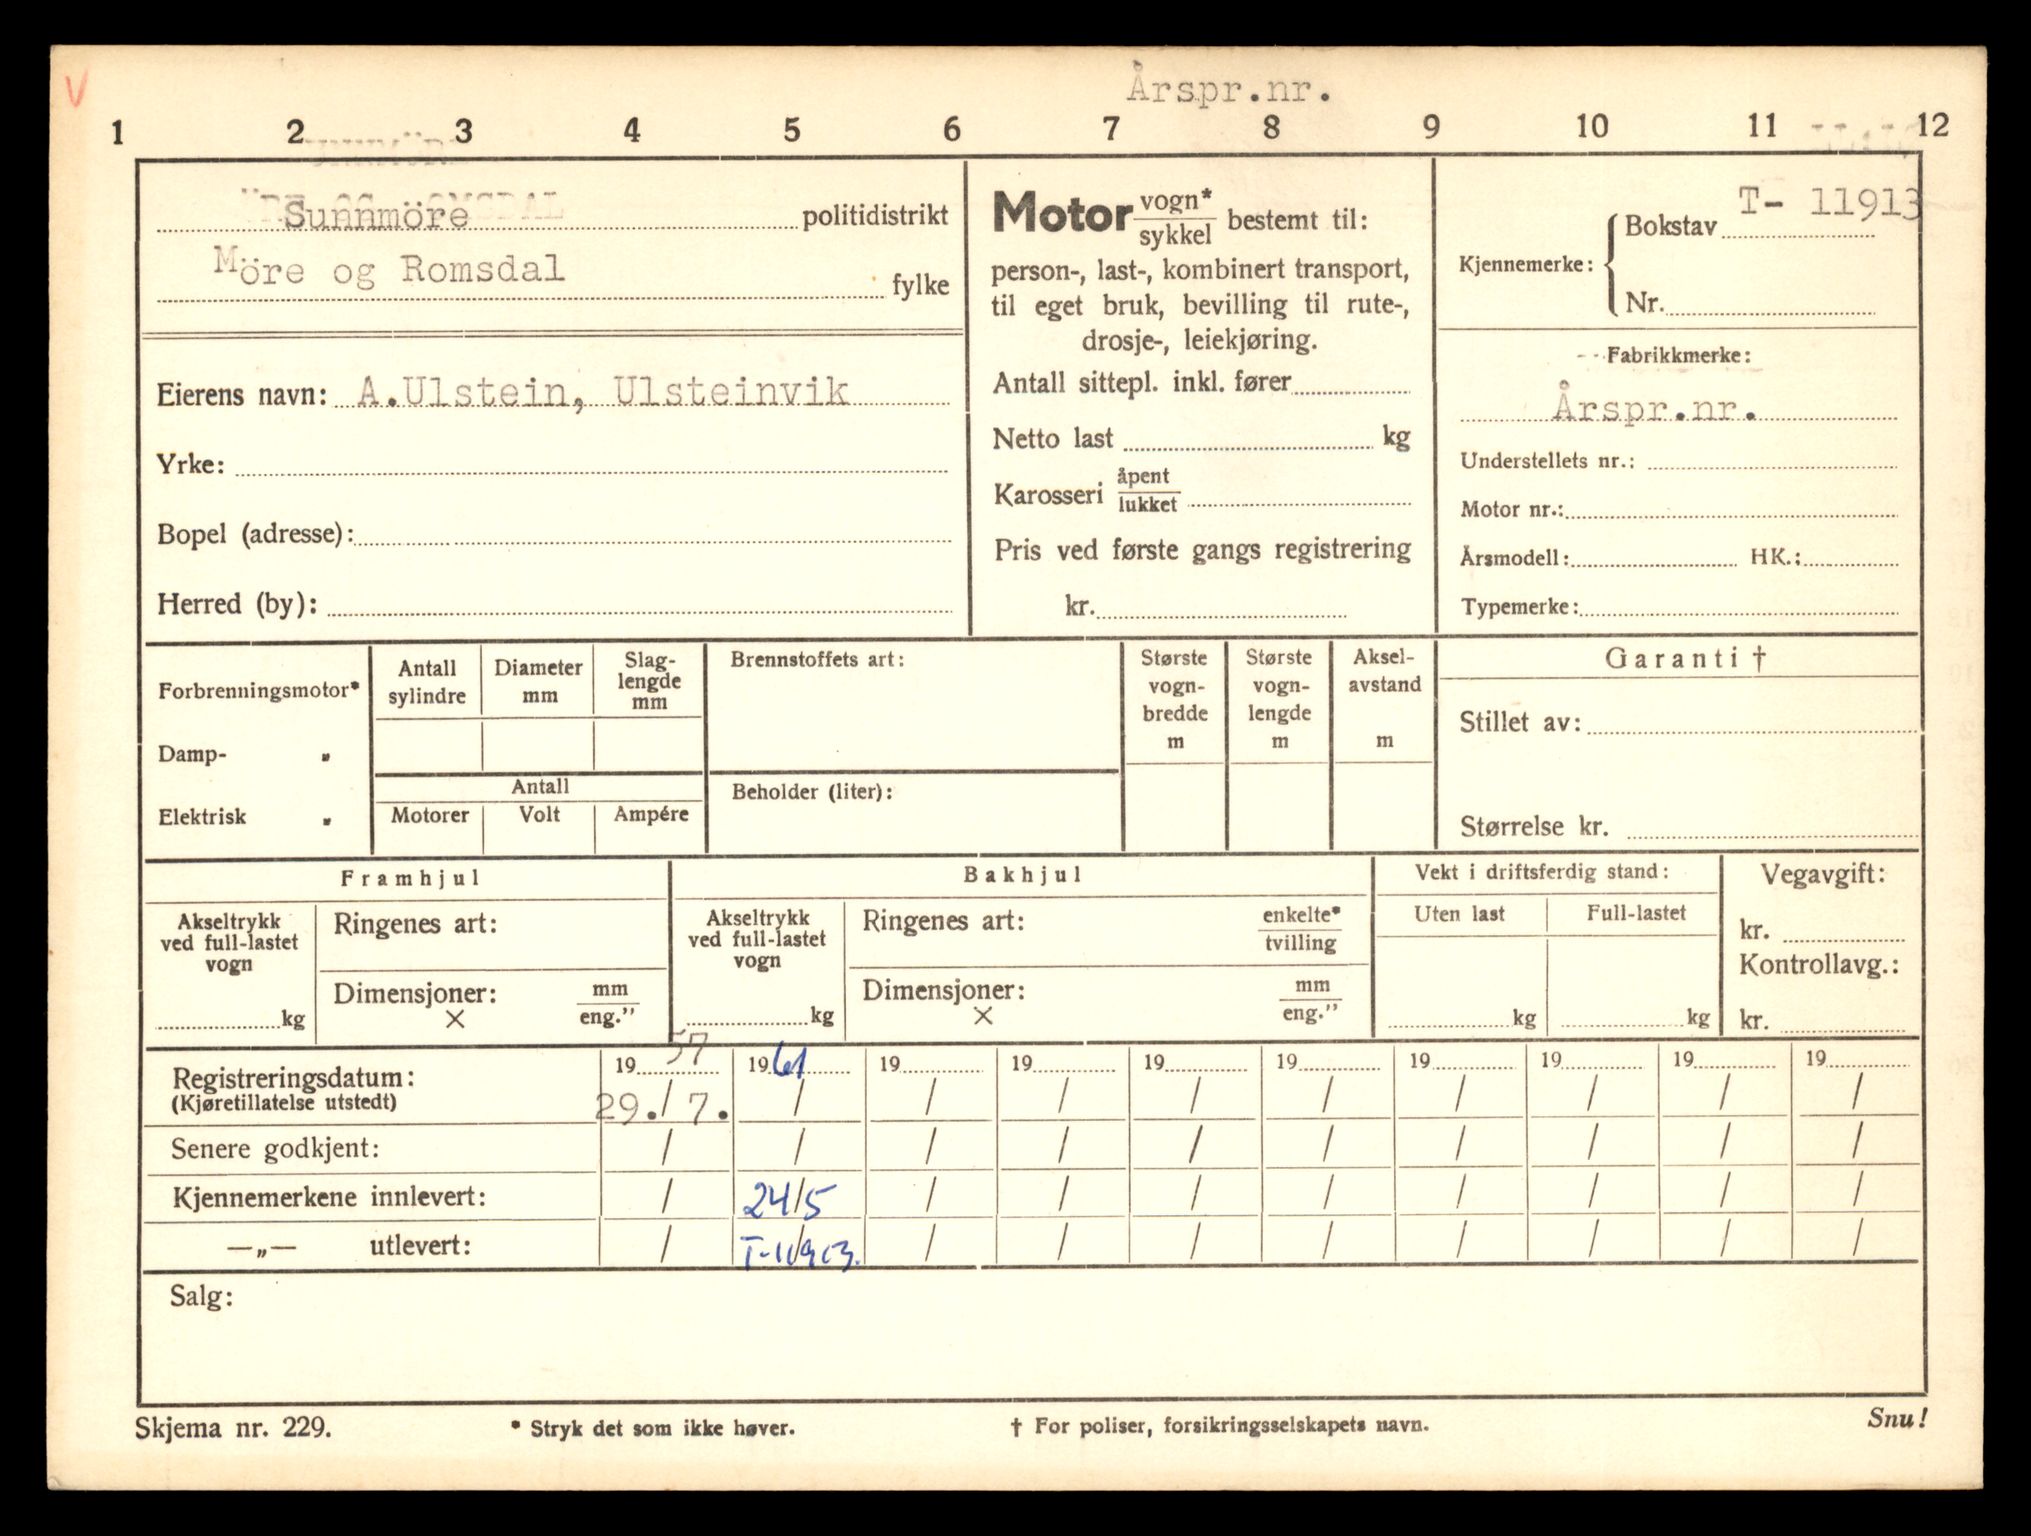 V
Årspr.nr.
1 2 3 4 5 6 7 8 9 10 11 12
Sunnmöre politidistrikt
Möre og Romsdal fylke
Eierens navn: A.Ulstein, Ulsteinvik
Yrke:
Bopel (adresse):
Herred (by):
Motor vogn* / sykkel bestemt til:
person-, last-, kombinert transport,
til eget bruk, bevilling til rute-,
drosje-, leiekjøring.
Antall sittepl. inkl. fører
Netto last kg
Karosseri åpent / lukket
Pris ved første gangs registrering
kr.
T- 11913
Kjennemerke: Bokstav
Nr.
Fabrikkmerke:
Årspr.nr.
Understellets nr.:
Motor nr.:
Årsmodell: HK.:
Typemerke:
Forbrenningsmotor*
Damp- „
Elektrisk „
Antall sylindre
Diameter mm
Slag-lengde mm
Antall
Motorer Volt Ampére
Brennstoffets art:
Beholder (liter):
Største vogn-bredde m
Største vogn-lengde m
Aksel-avstand m
Garanti †
Stillet av:
Størrelse kr.
Framhjul
Akseltrykk ved full-lastet vogn
kg
Ringenes art:
Dimensjoner: mm / eng.”
×
Bakhjul
Akseltrykk ved full-lastet vogn
kg
Ringenes art: enkelte* / tvilling
Dimensjoner: mm / eng.”
×
Vekt i driftsferdig stand:
Uten last Full-lastet
kg kg
Vegavgift:
kr.
Kontrollavg.:
kr.
19 57 19 61 19 19 19 19 19 19 19 19
Registreringsdatum: 29./7. / / / / / / / / /
(Kjøretillatelse utstedt)
Senere godkjent: / / / / / / / / / /
Kjennemerkene innlevert: / 24/5 / / / / / / / /
—„— utlevert: / T-11913. / / / / / / / /
Salg:
Skjema nr. 229. * Stryk det som ikke høver. † For poliser, forsikringsselskapets navn. Snu!